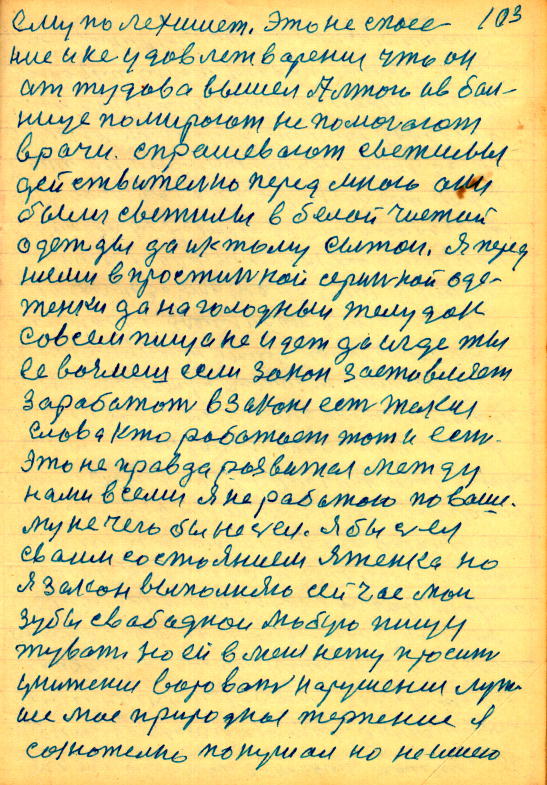 ему полехишет. Это не спосе- 103
ние и не удовлетварения что он
аттудова вышел А Литою ив бал-
нице помирают не помогают
врачи. спрашевают светилы
действително перед мною они
были светилы в белой чистой
одетды да и к тому сытои. Я перед
ними в простинкой серинкой оде-
женки да на голодный желудок
совсем пища не идет да и где ты
ее возмеш если закон заставляет
заработат в законе ест такие
слова кто работает тот и ест.
Это не правда развитая между
нами всеми я не работаю по ваше.
му не чего бы не ел. Я бы ел
сваим состоянием ятенка но
я закон выполняю сейчас мои
зубы свабадной любую пищу
жуват но ей в меня нету просит
унижения вороват нарушения луч-
ше мое природная терпение я
сознотелно покушал но не имею